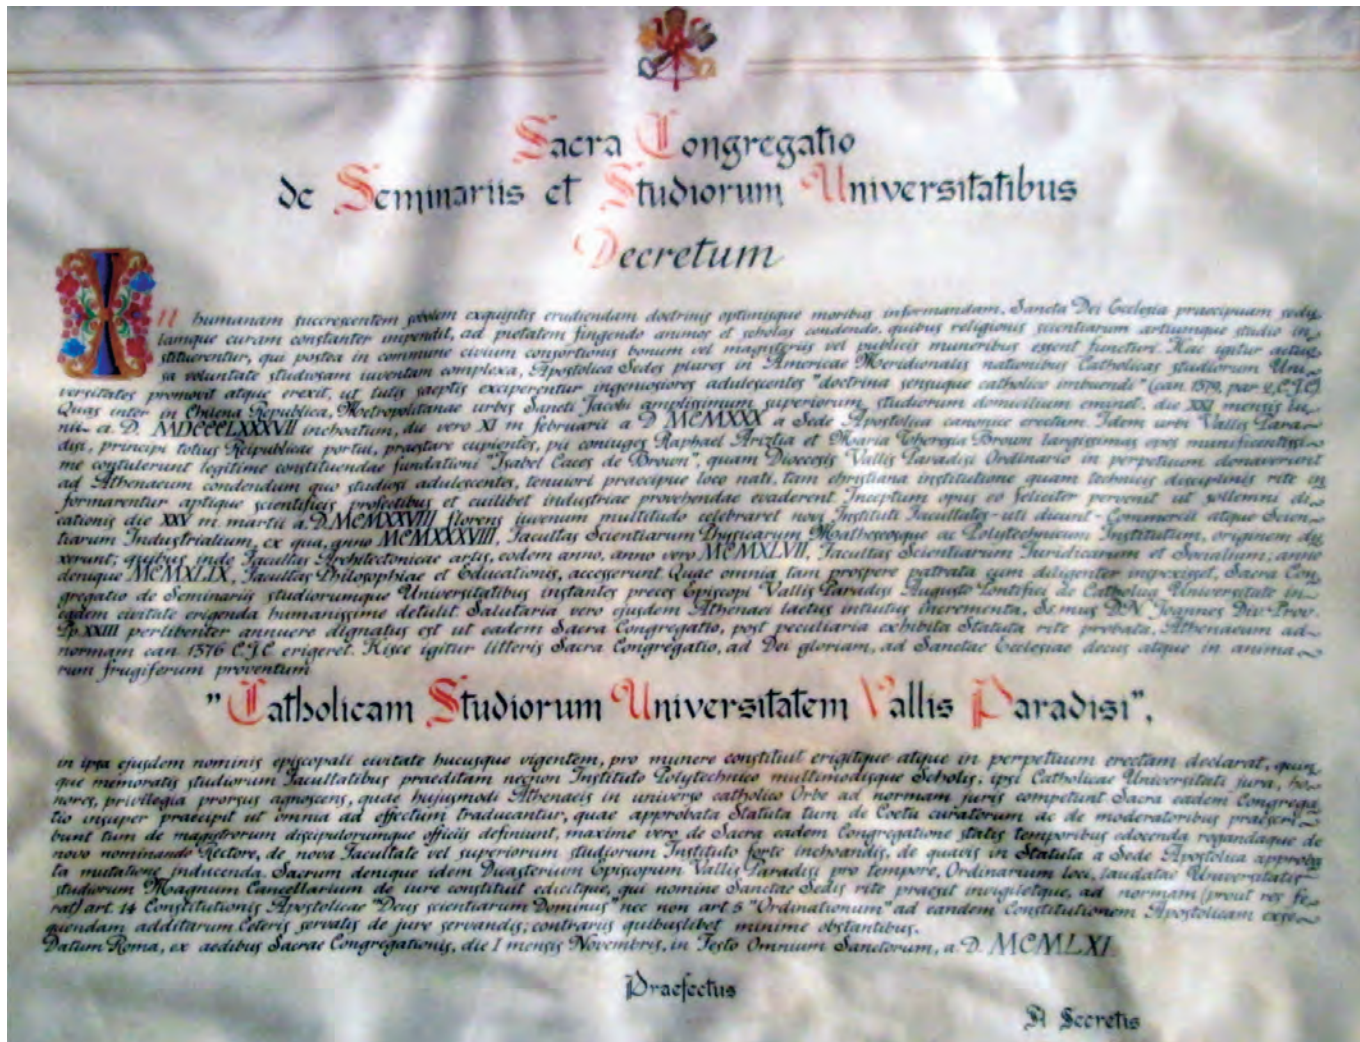 Sacra Congregatio
de Seminariis et Studiorum Universitatibus
Decretum
humanam succrescentem sobolem exquisitis erudiendam doctrinis optimisque moribus informandam, Sancta Dei Ecclesia praecipuam sedu
lamque curam constanter impendit, ad pietatem fingendo animos et scholas condendo, quibus religionis scientiarum artiumque studio in
stituerentur, qui postea in commune civium consortionis bonum vel magisteriis vel publicis muneribus essent functuri. Hac igitur actuo
sa voluntate studiosam iuventam complexa, Apostolica Sedes plures in Americae Meridionalis nationibus Catholicas studiorum Uni
versitates promovit atque erexit, ut tutis saeptis exciperentur ingeniosiores adulescentes "doctrina sensuque catholico imbuendi" (can 1379, par 2, C.J.C)
Quas inter in Chilena Republica, Metropolitanae urbis Sancti Jacobi amplissimum superiorum studiorum domicilium eminet, die XXI mensis Iu
nii a. D. MDCCCLXXXVII inchoatum, die vero XI m februarii a D MCMXXX a Sede Apostolica canonice erectam. Idem urbi Vallis Para
disi, principi totius Reipublicae portui, praestare cupientes, pii coniuges Raphael Ariztia et Maria Theresia Brown largissimas opes munificentissi
me contulerunt legitime constituendae fundationi "Isabel Caces de Brown", quam Dioecesis Vallis Paradisi Ordinario in perpetuum donaverunt
ad Athenaeum condendum quo studiosi adulescentes, tenuiori praecipue loco nati, tam christiana institutione quam technicis disciplinis rite in
formarentur aptique scientificis profectibus et cuilibet industriae provehendae evaderent Inceptum opus eo feliciter pervenit ut sollemni di
cationis die XXV m. martii a. D. MCMXXVIII florens iuvenum multitudo celebraret novi Instituti Facultates - uti dicunt - Commercii atque Scien
tiarum Industrialium, ex qua, anno MCMXXXVIII, Facultas Scientiarum Physicarum Matheseosque ac Polytechnicum Institutum, originem du
xerunt; quibus inde Facultas Architectonicae artis, eodem anno, anno vero MCMXLVII, Facultas Scientiarum Juridicarum et Socialium; anno
denique MCMXLIX, Facultas Philosophiae et Educationis, accesserunt Quae omnia tam prospere patrata cum diligenter inspexisset, Sacra Con
gregatio de Seminariis studiorumque Universitatibus instantes preces Episcopi Vallis Paradisi Augusto Pontifici de Catholica Universitate in
eadem civitate erigenda humanissime detulit. Salutaria vero ejusdem Athenaei laetus intuitus incrementa, Ss.mus D.N. Joannes Div. Prov.
Pp. XXIII perlibenter annuere dignatus est ut eadem Sacra Congregatio, post peculiaria exhibita Statuta rite probata, Athenaeum ad
normam can 1376 C.J.C erigeret. Hisce igitur litteris Sacra Congregatio, ad Dei gloriam, ad Sanctae Ecclesiae decus atque in anima
rum frugiferum proventum
"Catholicam Studiorum Universitatem Vallis Paradisi",
in ipsa ejusdem nominis episcopali civitate hucusque vigentem, pro munere constituit erigitque atque in perpetuum erectam declarat, quin
que memoratis studiorum Facultatibus praeditam necnon Instituto Polytechnico multimodisque Scholis; ipsi Catholicae Universitati jura, ho
nores, privilegia prorsus agnoscens, quae hujusmodi Athenaeis in universo catholico Orbe ad normam juris competunt Sacra eadem Congrega
tio insuper praecipit ut omnia ad effectum traducantur, quae approbata Statuta tum de Coetu curatorum ac de moderatoribus praescri
bunt tum de magistrorum discipulorumque officiis definiunt, maxime vero de Sacra eadem Congregatione statis temporibus edocenda rogandaque de
novo nominando Rectore, de nova Facultate vel superiorum studiorum Instituto forte inchoandis, de quavis in Statuta a Sede Apostolica approba
ta mutatione inducenda. Sacrum denique idem Dicasterium Episcopum Vallis Paradisi pro tempore, Ordinarium loci, laudatae Universitatis
studiorum Magnum Cancellarium de iure constituit edicitque, qui nomine Sanctae Sedis rite praesit invigiletque, ad normam (prout res fe
rat) art. 14 Constitutionis Apostolicae "Deus scientiarum Dominus" nec non art 5 "Ordinationum" ad eandem Constitutionem Apostolicam exse
quendam additarum Ceteris servatis de jure servandis; contrariis quibuslibet minime obstantibus.
Datum Roma, ex aedibus Sacrae Congregationis, die I mensis Novembris, in Festo Omnium Sanctorum, a D. MCMLXI.
Praefectus
A Secretis